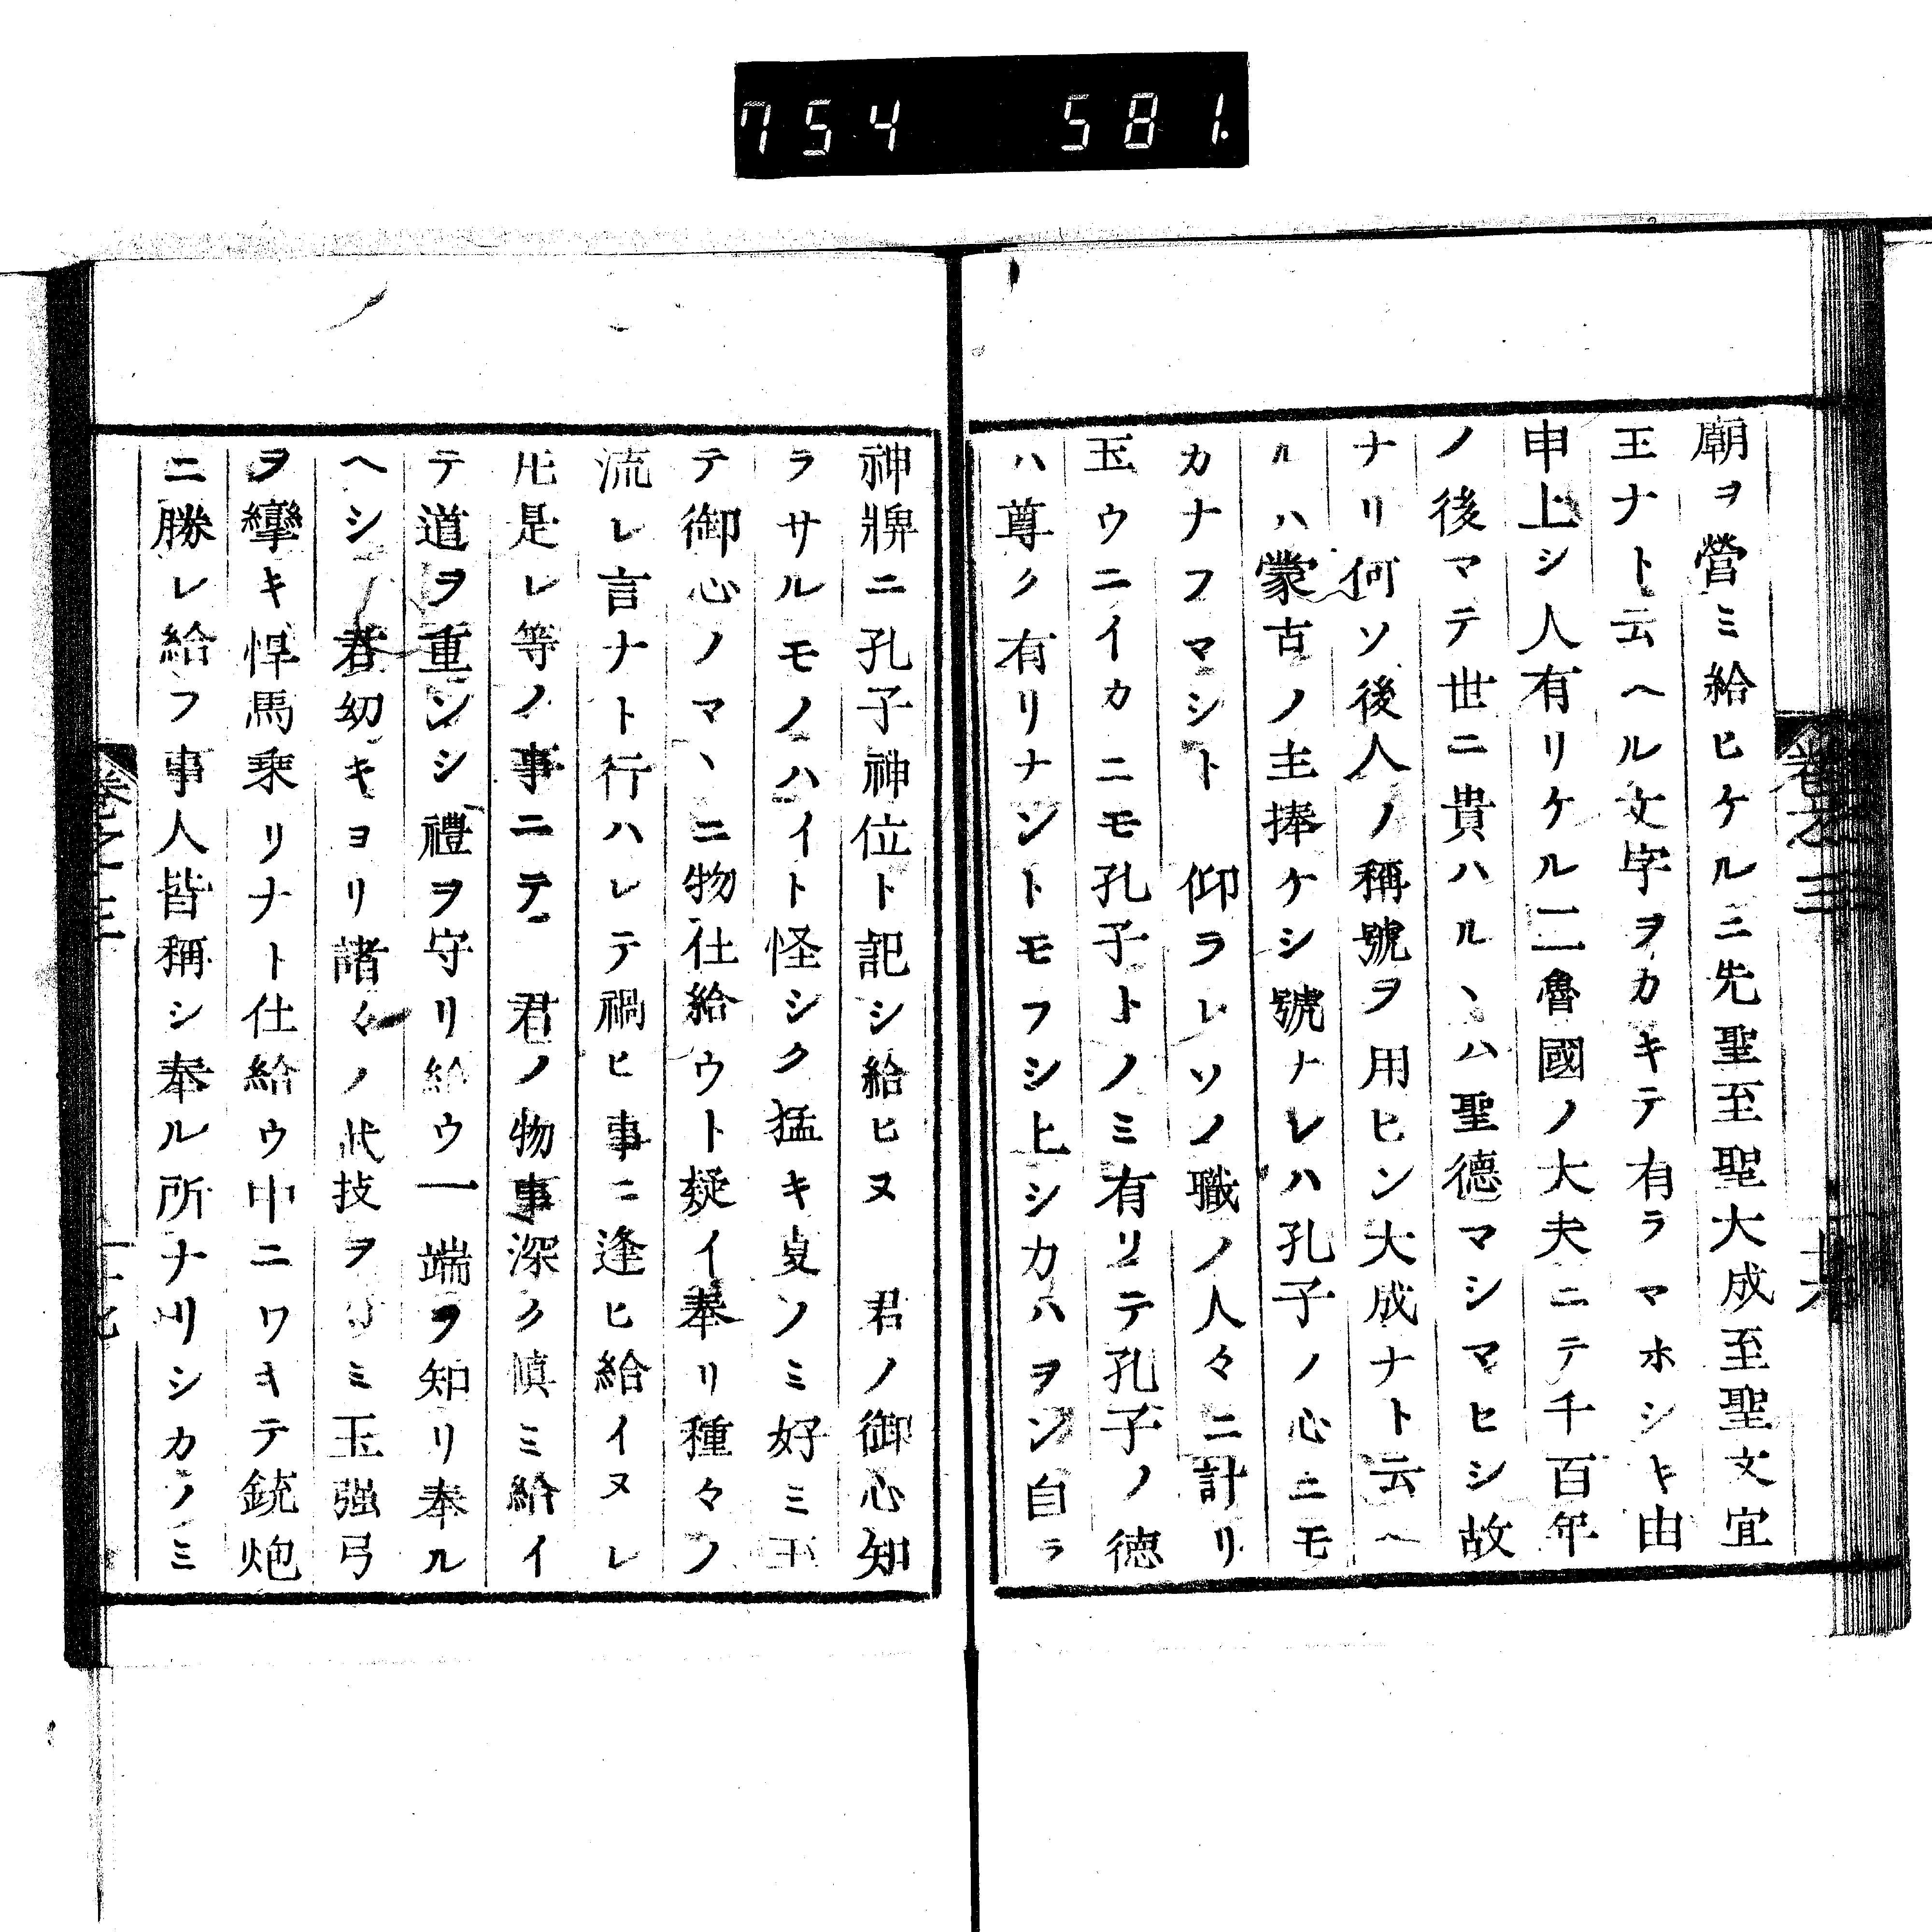 754 581.
廟ヲ營ミ給ヒケルニ先聖至聖大成至聖文宣
王ナト云ヘル文字ヲカキテ有ラマホシキ由
申上シ人有リケルニ魯國ノ大夫ニテ千百年
ノ後マテ世ニ貴ハルヽハ聖德マシマヒシ故
ナリ何ソ後人ノ稱號ヲ用ヒン大成ナト云ヘ
ルハ蒙古ノ主捧ケシ號ナレハ孔子ノ心ニモ
カナフマシト 仰ラレソノ職ノ人々ニ計リ
玉ウニイカニモ孔子トノミ有リテ孔子ノ德
ハ尊ク有リナントモフシ上シカハヲン自ラ
神牌ニ孔子神位ト記シ給ヒヌ 君ノ御心知
ラサルモノハイト怪シク猛キ叓ノミ好ミ玉
テ御心ノマヽニ物仕給ウト疑イ奉リ種々ノ
流レ言ナト行ハレテ禍ヒ事ニ逢ヒ給イヌレ
𪜈是レ等ノ事ニテ 君ノ物事深ク愼ミ給イ
テ道ヲ重ンシ禮ヲ守リ給ウ一端ヲ知リ奉ル
ヘシ 君幼キヨリ諸々ノ武技ヲ ミ玉強弓
ヲ彎キ悍馬乘リナト仕給ウ中ニワキテ銃炮
ニ勝レ給フ事人皆稱シ奉ル所ナリシカノミ
卷之三